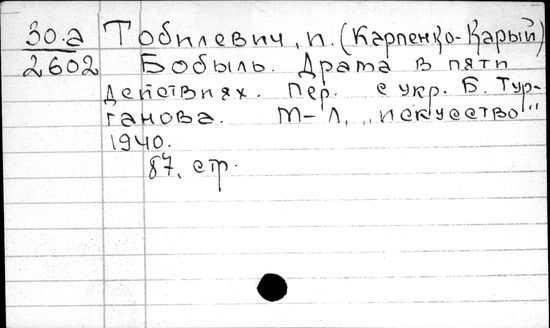 30.а Тобилевич, И. (Карпенко-Карый)
2602 Бобыль. Драма в пяти
действиях. Пер. с укр. Б. Тур-
ганова. М-Л, „Искусство"
1940.
87, стр.